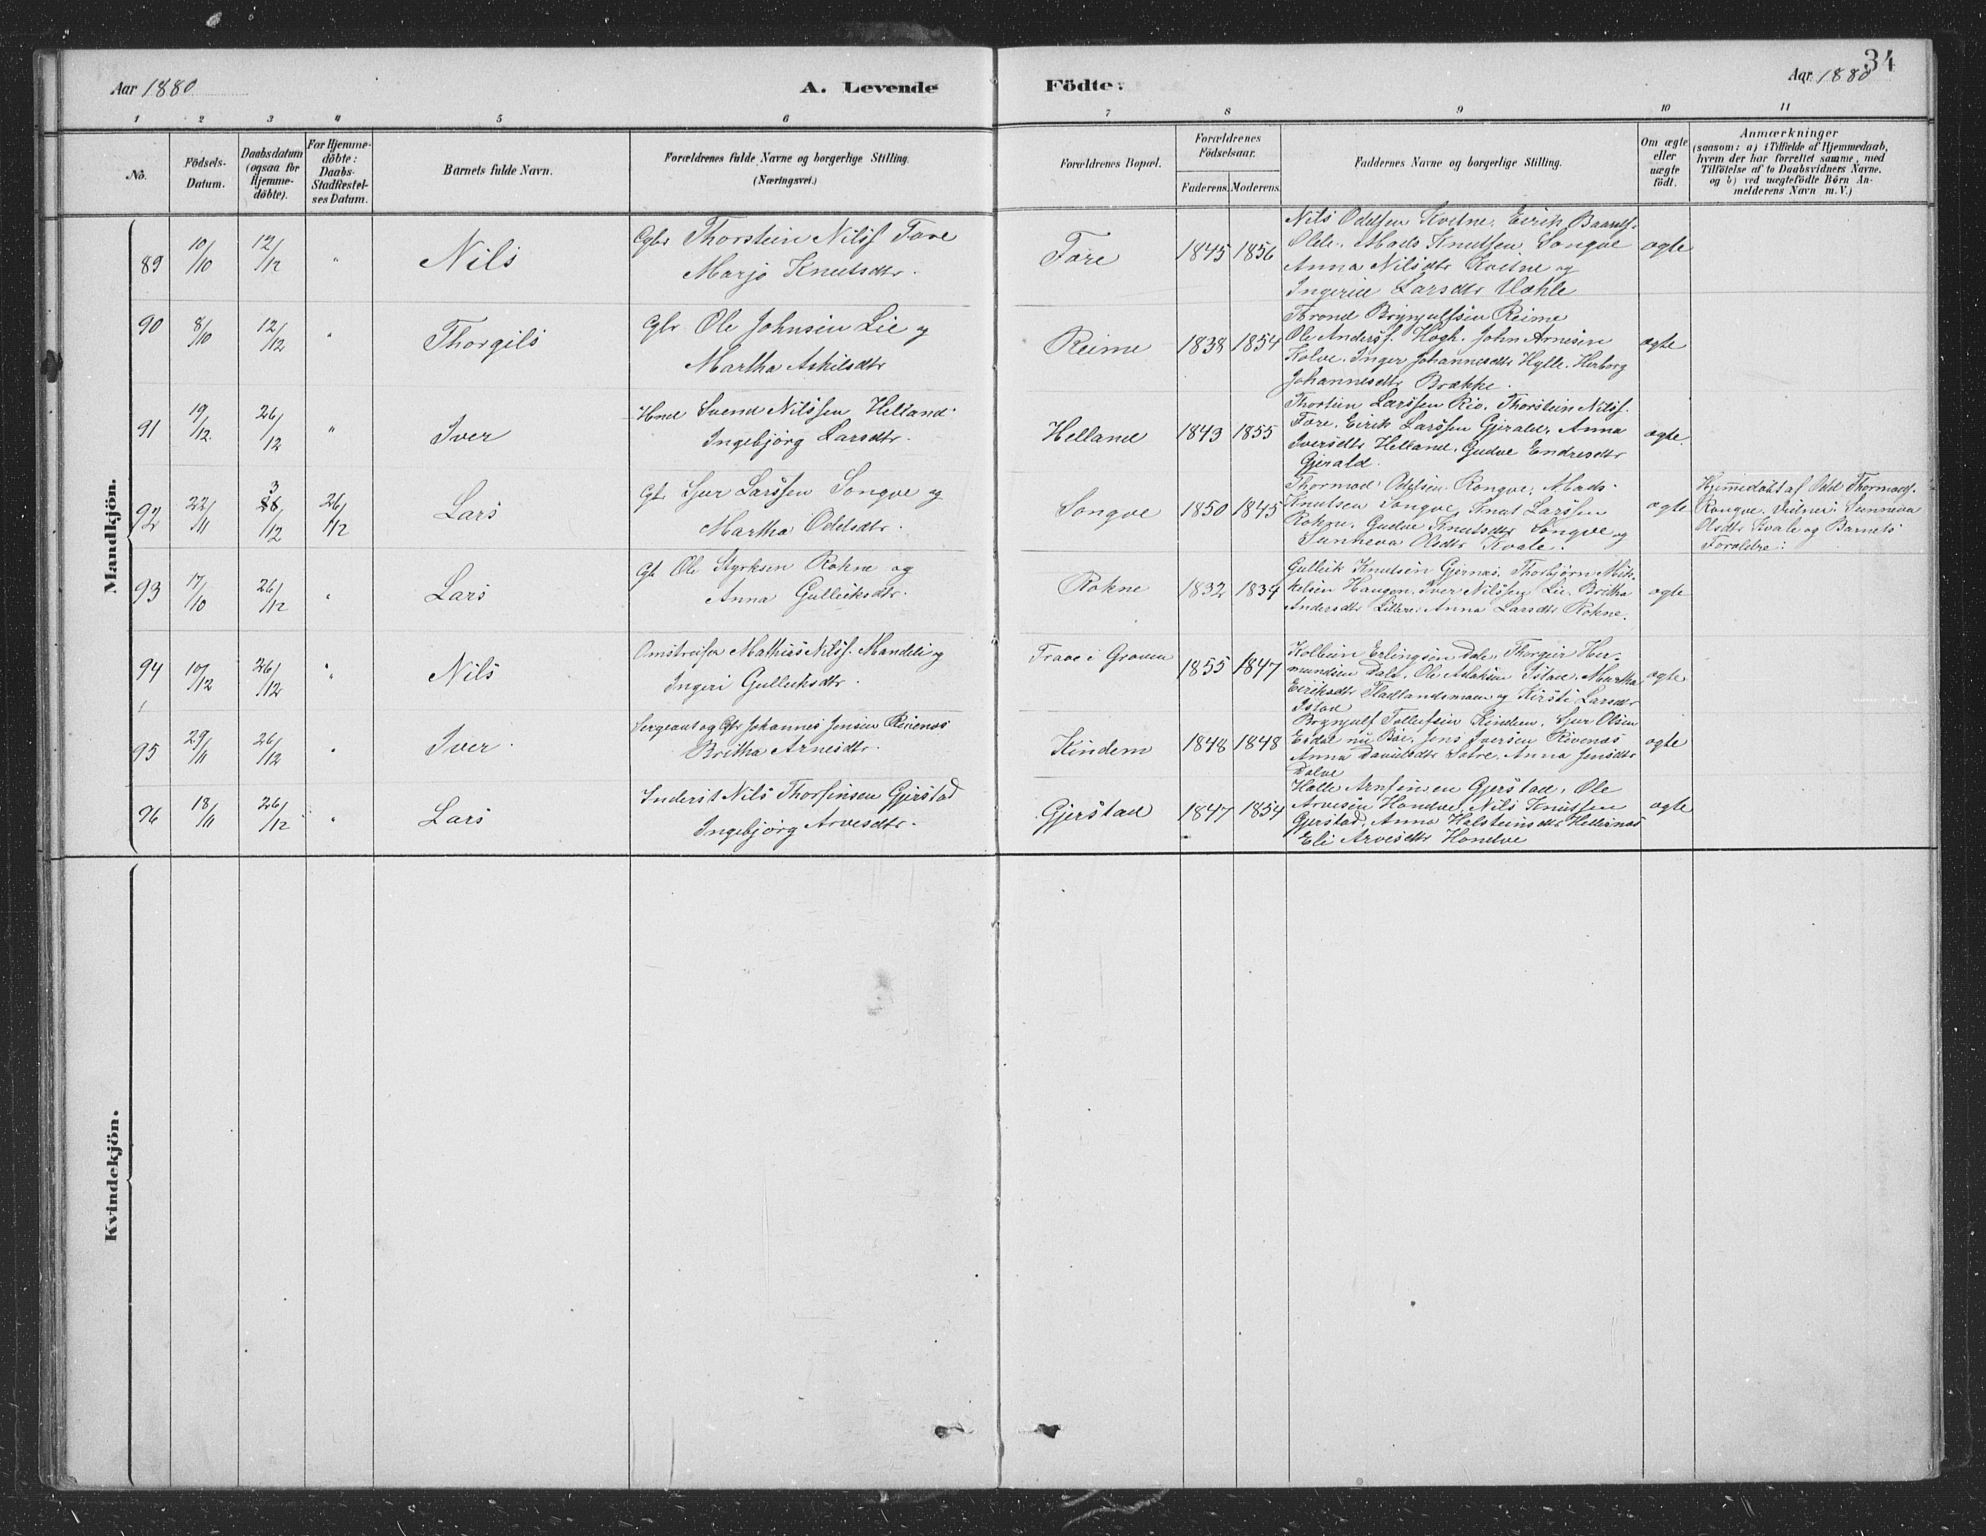 34
Aar 1880
A. Levende
Födte.
Aar 1880
1 2 3 4 5 6 7 8 9 10 11
No.
Födsels-
Datum.
Daabsdatum
(ogsaa for
Hjemme-
döbte).
For Hjemme-
döbte:
Daabs-
Stadfæstel-
ses Datum.
Barnets fulde Navn.
Forældrenes fulde Navne og borgerlige Stilling.
(Næringsvei.)
Forældrenes Bopæl.
Forældrenes
Födselsaar.
Faderens. Moderens.
Faddernes Navne og borgerlige Stilling.
Om ægte
eller
uægte
födt.
Anmærkninger
(saasom: a) i Tilfælde af Hjemmedaab,
hvem der har forrettet samme, med
Tilföielse af to Daabsvidners Navne,
og b) ved uægtefödte Börn An-
melderens Navn m. V.)
Mandkjön.
89 10/10 12/12 " Nils
Gbr Thorstein Nilsf Fære
Marjo Knutsdtr.
Føre 1845 1856
Nils Oddsen Kvitne. Eirik
Mads Knutsen Songve
Anna Nilsdtr Kvitne og
Larsdtr
ægte
90 8/10 12/12 " Thorgils
Gbr Ole Johnsen Lie og
Martha Askilsdtr
Reime 1838 1854
Thrond Brynjulfsen Reime
Ole Andersf. John Arnesen
Kolve. Inger Johannesdtr Hylle. Herborg
Johannesdtr Brække.
ægte
91 19/12. 26/12 " Iver
Svend Nilssen Helland.
Ingebjörg Larsdtr.
Helland 1843 1855
Thorstein Larssen Rio. Thorstein Nilsf.
Fore. Eirik Larssen Gjerald. Anna
Iversdtr Helland. Gudve Endresdtr
Gjerald.
ægte.
92 22/11 3/12 26/12 Lars
Gbr Sjur Larssen Songve og
Martha Oddsdtr.
Songve 1850 1845
Thormod Oddsen Rongve. Mads
Knutsen Songve, Knut Larssen
Rokne. Gudve Knutsdtr Songve og
Sunneva Olsdtr Kvale.
ægte
Hjemmedøbt af Odd Thormodf.
Rongve. Vidner: Sunneva
Olsdtr Kvale og Barnets
Forældre.
93 17/10 26/12 " Lars
Gbr Ole Styrksen Rokne og
Anna Gulleiksdtr.
Rokne 1832 1834
Gulleik Knutsen Gjernæs, Thorbjörn Mik-
kelsen Haugen. Iver Nilssen Lie. Britha
Andersdtr Anna Larsdtr Rokne.
ægte
94 10/12 26/12 " Nils
Omstreifer Mathias Nilsf. Mandeli og
Ingeri Gulleiksdtr.
Træe i Graven 1855 1847
Kolbein Erlingsen Dale. Thorgeir Her-
mundsen Dale. Ole Istad. Martha
Eiriksdtr Flatlandsmoen og Kirsti Larsdtr
Istad
ægte
95 29/11 26/12 " Iver.
Sergeant og Gbr Johannes Jensen Rivenæs
Britha Arnesdtr.
Kindem 1848 1848
Brynjulf Tollefsen Kindem. Sjur Olsen
Eidal nu Jens Iversen Rivenæs
Anna Davidsdtr Sætre. Anna Jensdtr
Dalve
ægte
96 18/11 26/12 " Lars
Inderst Nils Thorfinsen Gjerstad
Ingebjörg Arvesdtr.
Gjerstad 1847 1854
Halle Arnfinsen Gjerstad. Ole
Arvesen Hondve. Nils Knutsen
Gjerstad. Anna Halsteinsdtr Hellesnæs
Eli Arvesdtr Hondve
ægte
Kvindekjön.